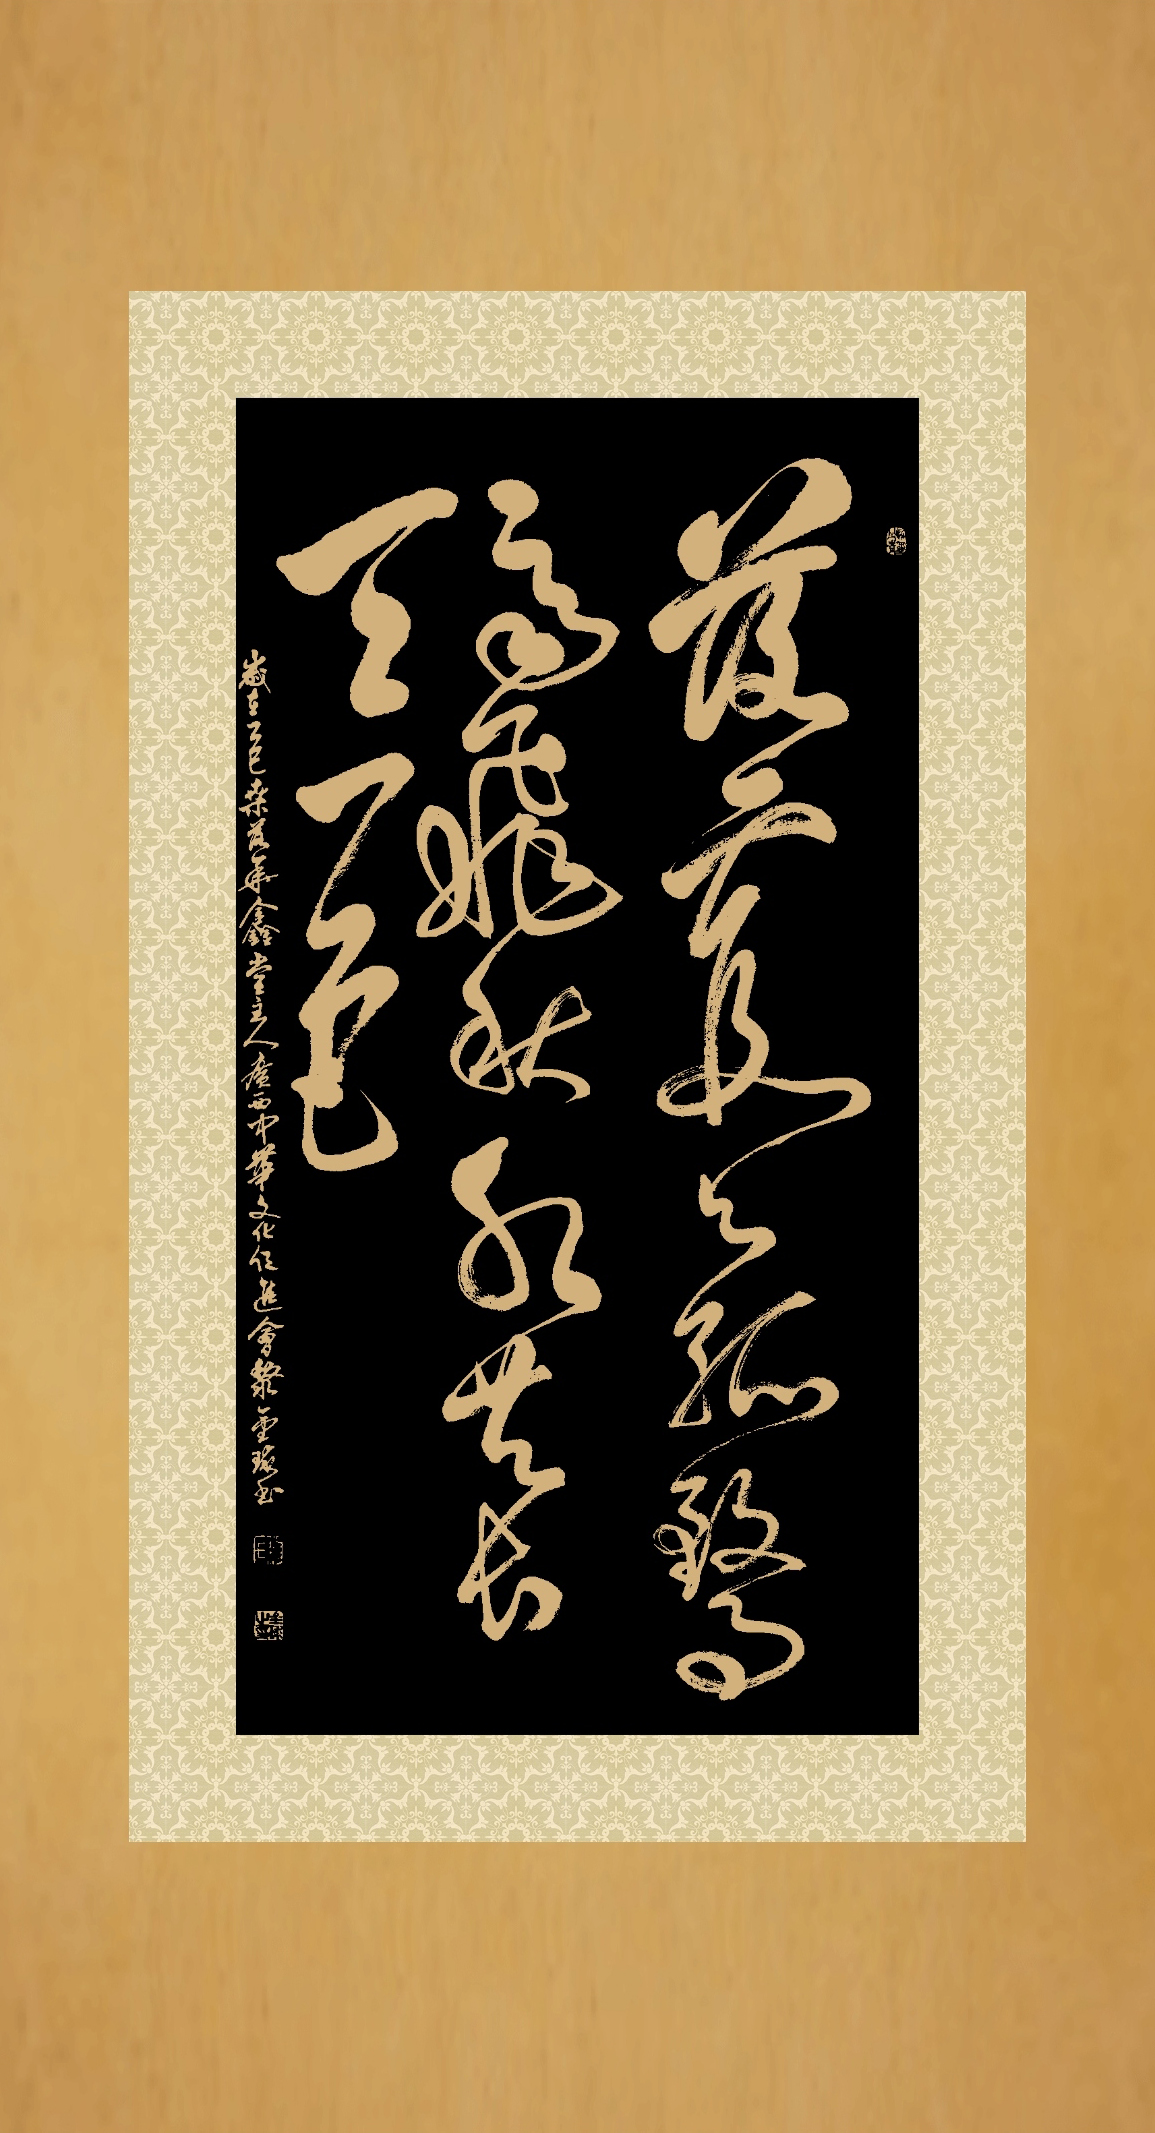 落霞与孤鶩
齊飛秋水共长
天一色
歲在乙巳桑落華鑫堂主人廣西中華文化促進會黎金书